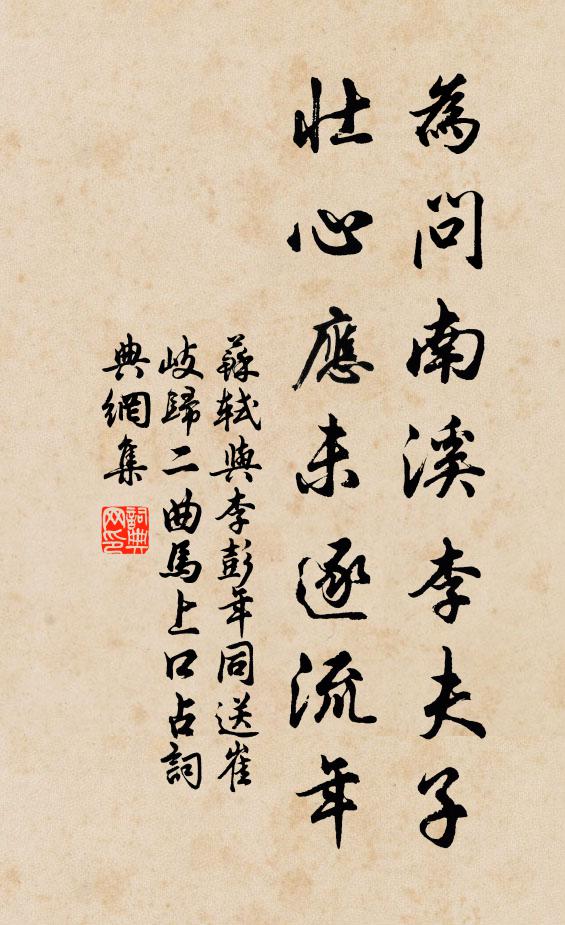 為問南溪李夫子
壯心應未逐流年
蘇軾與李彭年同送崔
岐歸二曲馬上口占詞
典網集
詞典
网印